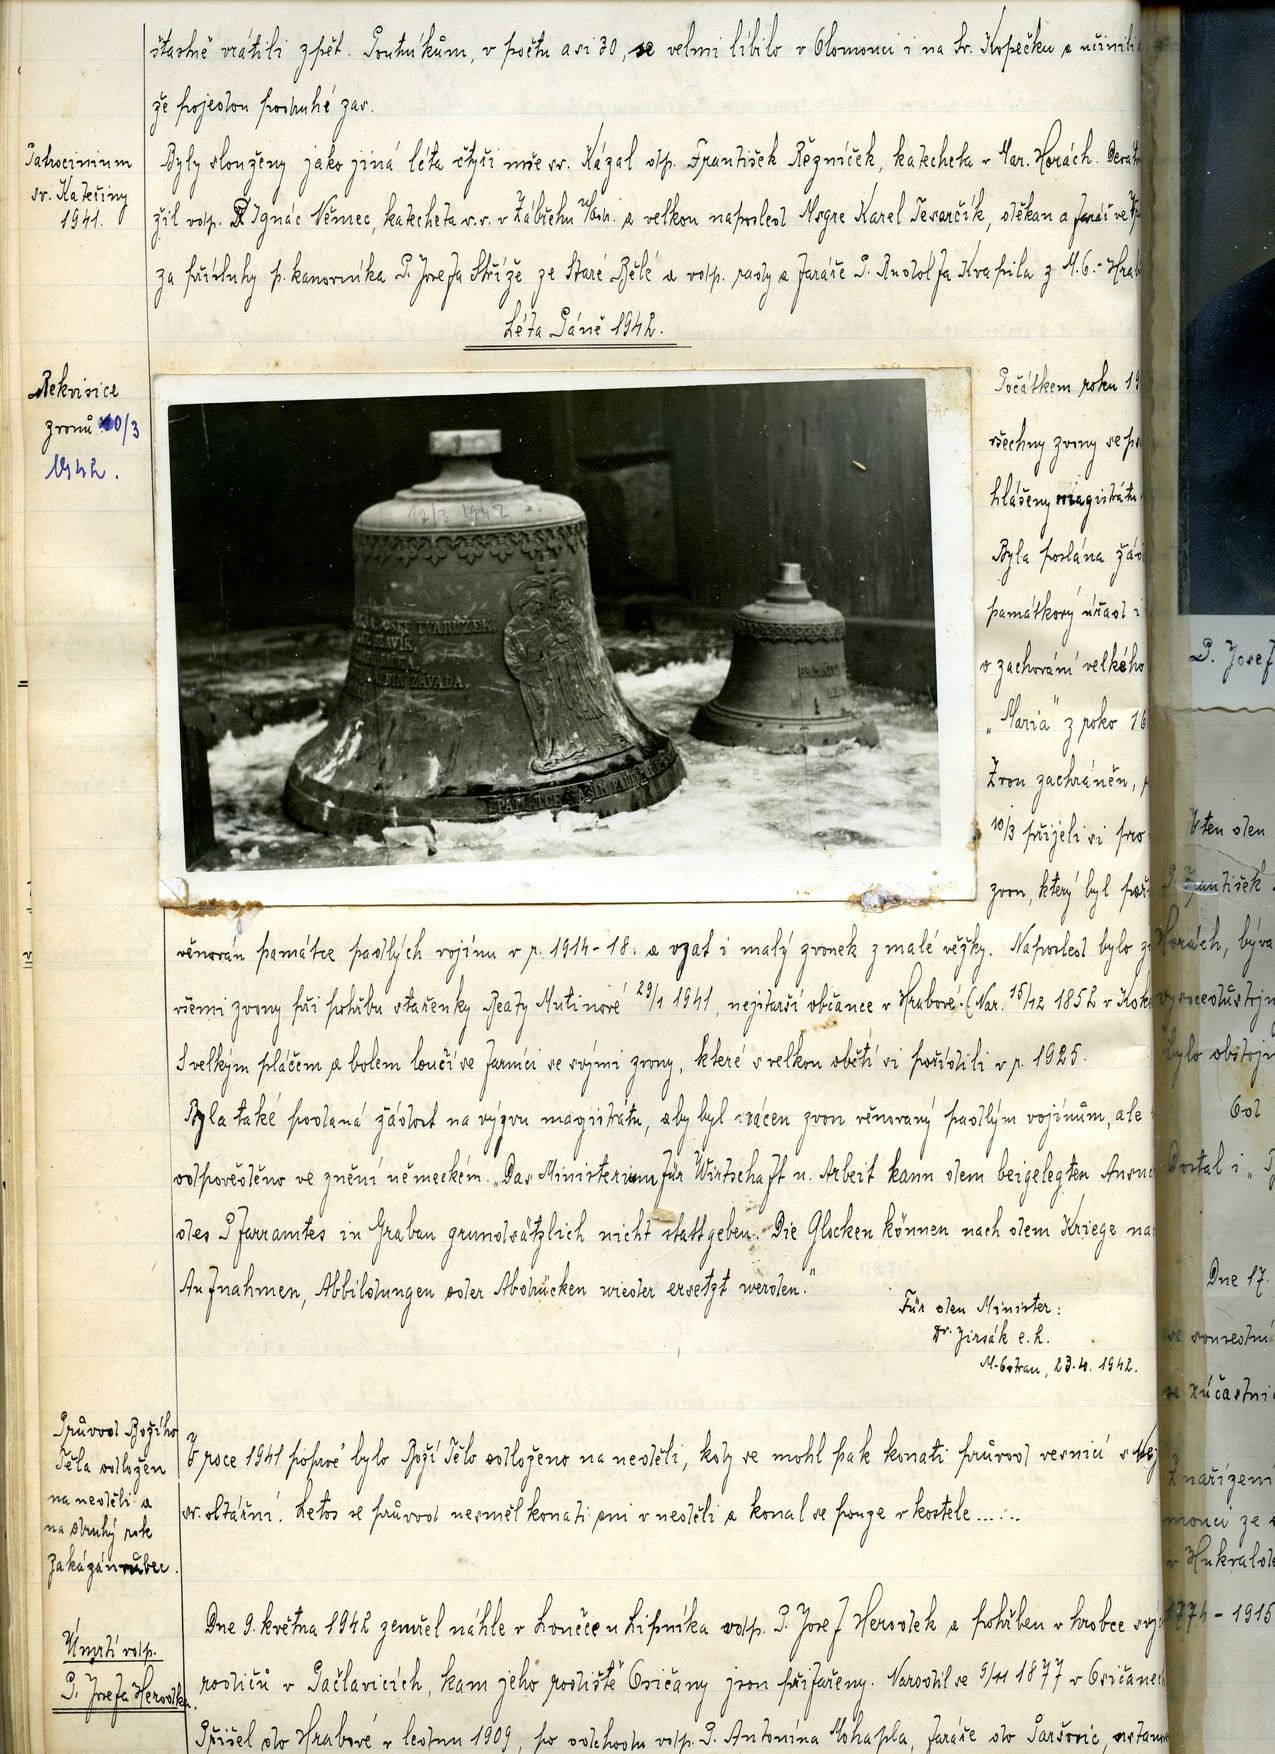 šťastně vrátili zpět. Poutníkům, v počtu asi 30, se velmi líbilo v Olomouci i na Sv. Kopečku a učinili
že pojedou podruhé zas.
Patrocinium
sv. Kateřiny
1941.
Byly slouženy jako jiná léta čtyři mše sv. Kázal vdp. František Řezníček, katecheta v Mar. Horách.
žil vdp. P. Ignác Němec, katecheta v.v. v Zábřehu n/Odr. a velkou naposled Msgre Karel Tesarčík, děkan a farář ve
za přísluhy p. kanovníka P. Josefa Stříže ze Staré Bělé a vdp. rady a faráře P. Rudolfa Kvapila z M.O.- Hrab
Léta Páně 1942.
Rekvisice
zvonů 10/3
1942.
12/3 1942
TVARŮŽEK
ZÁVADA,
PAMÁTCE
Počátkem roku 19
všechny zvony se
hlášeny magistrátu
Byla poslána žád
památkový úřad i
o zachování velkého
„Maria" z roko 16
Zvon zachráněn,
10/3 přijeli si pro
zvon, který byl
věnován památce padlých vojínu v r. 1914-18. a vzat i malý zvonek z malé věžky. Naposled bylo
všemi zvony při pohřbu stařenky Beaty Mutinové 29/1 1941, nejstarší občance v Hrabové. (Nar. 15/12 1852 v
S velkým pláčem a bolem loučí se farníci se svými zvony, které s velkou obětí si pořídili v r. 1925.
Byla také podaná žádost na výzvu magistrátu, aby byl vrácen zvon věnovaný padlým vojínům, ale
odpověděno ve znění německém. „Das Ministerium für Wirtschaft u. Arbeit kann dem beigelegten
des Pfarramtes in Grabau grundsätzlich nicht stattgeben. Die Glocken können nach dem Kriege na
Aufnahmen, Abbildungen oder Abdrücken wieder ersetzt werden."
Für den Minister:
Dr. Jirsák e.h.
M.-Ostrau, 23.4. 1942.
Průvod Božího
Těla odložen
na neděli a
na druhý rok
zakázán vůbec.
V roce 1941 poprvé bylo Boží Tělo odloženo na neděli, kdy se mohl pak konati průvod vesnicí s
sv. oltářní. Letos se průvod nesměl konati ani v neděli a konal se pouze v kostele.....
Úmrtí vdp.
P. Josefa Herodka.
Dne 9. května 1942 zemřel náhle v Loučce u Lipníka vdp. P. Josef Herodek a pohřben v hrobce svý
rodičů v Pačlavicích, kam jeho rodiště Osíčany jsou přifařeny. Narodil se 9/11 1877 v Osíčanech
Přišel do Hrabové v lednu 1909, po odchodu vdp. P. Antonína Mohapla, faráře do Paršovic,
P. Josef
V ten den
P. František
Horách, býva
vysocedůstojn
bylo obstojn
Dostal i
Dne 17.
se sousední
se zúčastni
Z nařízení
v Hukvald
1774 - 1915